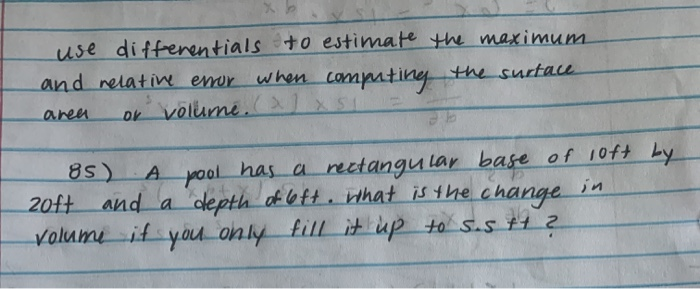 use differentials to estimate the maximum
and relative error when computing the surface
area or volume.
85) A pool has a rectangular base of 10ft by
20ft and a depth of 6ft. What is the change in
volume if you only fill it up to 5.5 ft ?